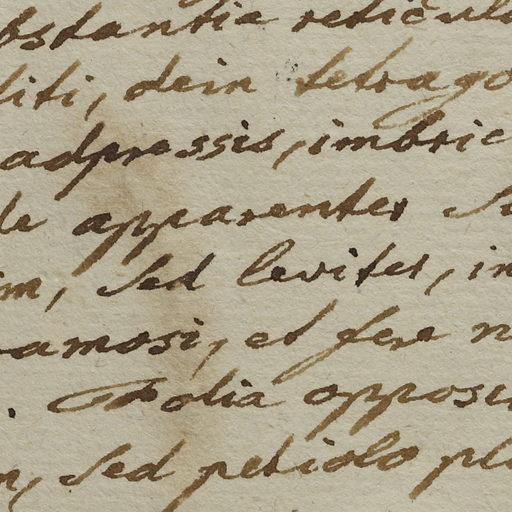 bstantia reticulo
liti, dein tetrago
adpressis, imbric
de apparenter su
im, sed leviter, in
ramosi, et fere n
. Folia opposi
n, sed petiolo pla